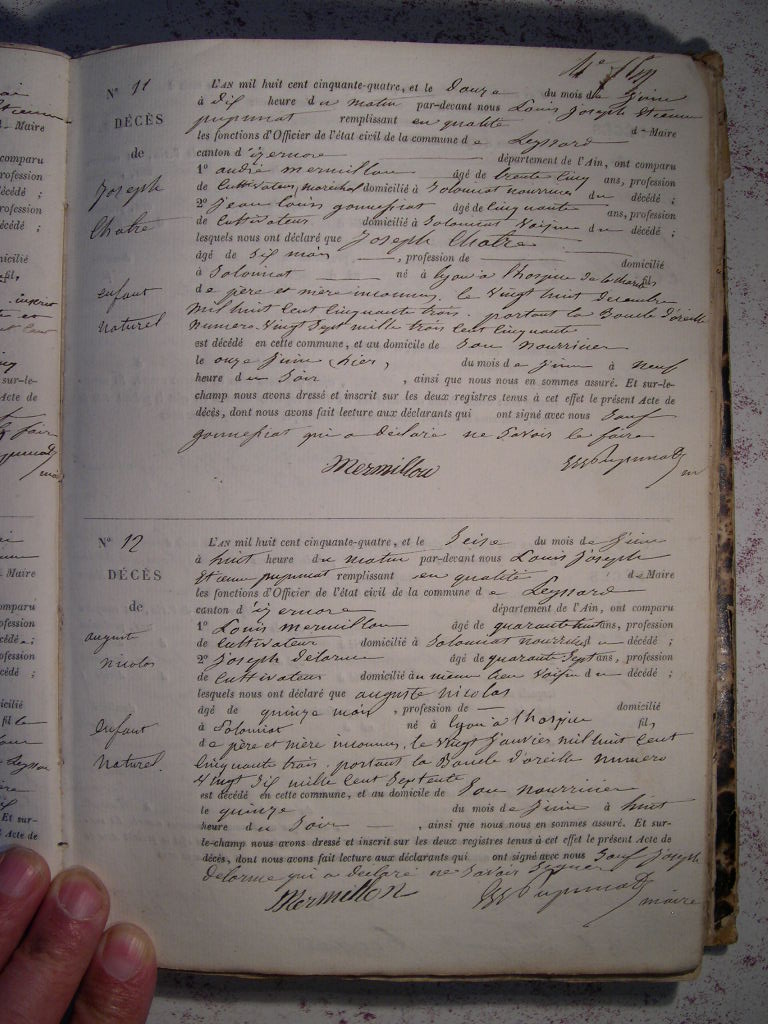 Nº 11
DÉCÈS
de
Joseph
Chatre
enfant
naturel
L'AN mil huit cent cinquante-quatre, et le Douze du mois de Juin
à Dix heure du matin par-devant nous Louis Joseph Etienne
puynnat remplissant en qualité de Maire
les fonctions d'Officier de l'état civil de la commune de Leyssard
canton d'izernore département de l'Ain, ont comparu
1º andré mermillon âgé de trente cinq ans, profession
de Cultivateur, maréchal domicilié à Solonnat nourricier du décédé ;
2º Jean Louis gonnefrat âgé de Cinquante ans, profession
de Cultivateur domicilié à Solonnat Voisin du décédé ;
lesquels nous ont déclaré que Joseph Chatre
âgé de Six mois , profession de domicilié
à Solonnat né à Lyon à l'hospice de la charité fils
de père et mère inconnus, le Vingt huit Decembre
mil huit Cent Cinquante trois. portant la Boucle d'oreille
numero Vingt Sept mille trois Cent Cinquante
est décédé en cette commune, et au domicile de Son nourricier
le onze Juin (hier) du mois de Juin à neuf
heure du Soir , ainsi que nous nous en sommes assuré. Et sur-le-
champ nous avons dressé et inscrit sur les deux registres tenus à cet effet le présent Acte de
décès, dont nous avons fait lecture aux déclarants qui ont signé avec nous Sauf
gonnefrat qui a déclaré ne Savoir le faire
Mermillon
Nº 12
DÉCÈS
de
august
nicolas
enfant
Naturel.
L'AN mil huit cent cinquante-quatre, et le Seize du mois de Juin
à huit heure du matin par-devant nous Louis Joseph
Etienne puynnat remplissant en qualité de Maire
les fonctions d'Officier de l'état civil de la commune de Leyssard
canton d'izernore département de l'Ain, ont comparu
1º Louis mermillon âgé de quarante huit ans, profession
de Cultivateur domicilié à Solonnat nourricier du décédé ;
2º Joseph Delorme âgé de quarante Sept ans, profession
de Cultivateur domicilié au même lieu Voisin du décédé ;
lesquels nous ont déclaré que auguste nicolas
âgé de quinze mois , profession de — domicilié
à Solonnat né à Lyon à l'hospice fils,
de père et mère inconnus, le Vingt Janvier mil huit Cent
Cinquante trois. portant la Boucle d'oreille numero
Vingt Six mille Cent Septente
est décédé en cette commune, et au domicile de Son nourricier
le quinze du mois de Juin à huit
heure du Soir , ainsi que nous nous en sommes assuré. Et sur-
le-champ nous avons dressé et inscrit sur les deux registres tenus à cet effet le présent Acte de
décès, dont nous avons fait lecture aux déclarants qui ont signé avec nous Sauf Joseph
Delorme qui a déclaré ne Savoir Signer
Mermillon
maire